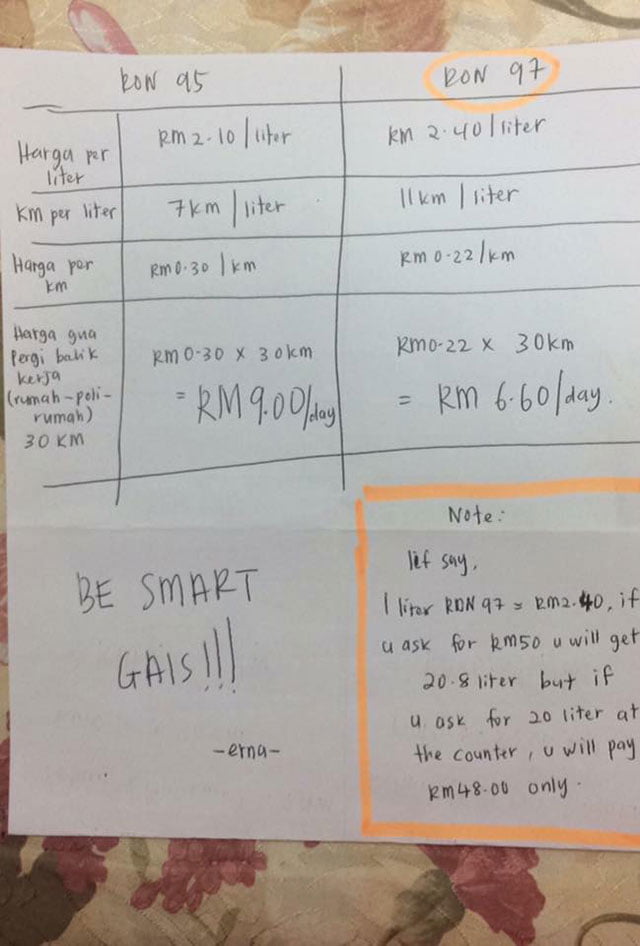 RON 95 RON 97
Harga per
liter
RM 2.10 / liter
RM 2.40 / liter
Km per liter
7km / liter
11km / liter
Harga per
km
RM 0.30 / km
RM 0.22/km
Harga gua
pergi balik
kerja
(rumah-poli-
rumah)
30 KM
RM 0.30 x 30km
= RM 9.00/day
RM0.22 x 30km
= RM 6.60/day.
BE SMART
GAIS!!!
-erna-
Note:
let say,
1 liter RON 97 = RM2.40, if
u ask for RM50 u will get
20.8 liter but if
u ask for 20 liter at
the counter, u will pay
RM48.00 only.